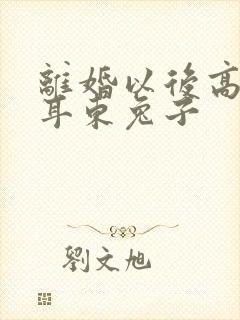 離婚以後高
耳朿兔子
劉文旭